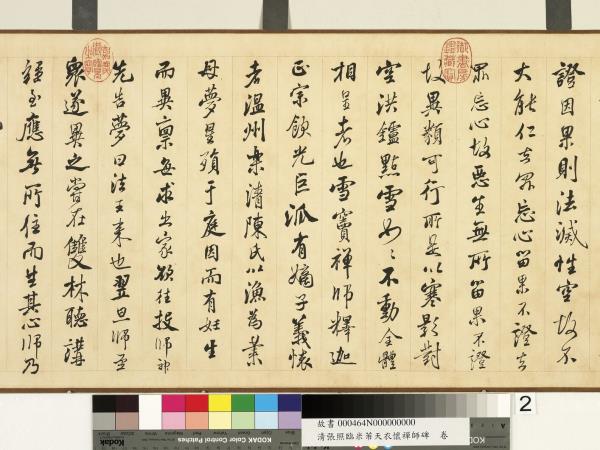 證因果則法滅性空故不
大能仁者眾忘心留果不證者
眾忘心故惡生無所留果不證
故異類可行所是以寒影對
空洪鑪點雪如〻不動全體
相呈者也雪竇禪師釋迦
正宗飲光巨派有嫡子義懷
者溫州樂清陳氏以漁為業
母夢星殞于庭因而有妊生
而異稟每求出家欲往投師神
先告夢曰法王來也翌旦師至
眾遂異之嘗在雙林聽講
經至應無所住而生其心師乃
御書房鑑藏寶
KODAK Color Control Patches
Kodak
2
故書 000464N000000000
清張照臨米芾天衣懷禪師碑 卷